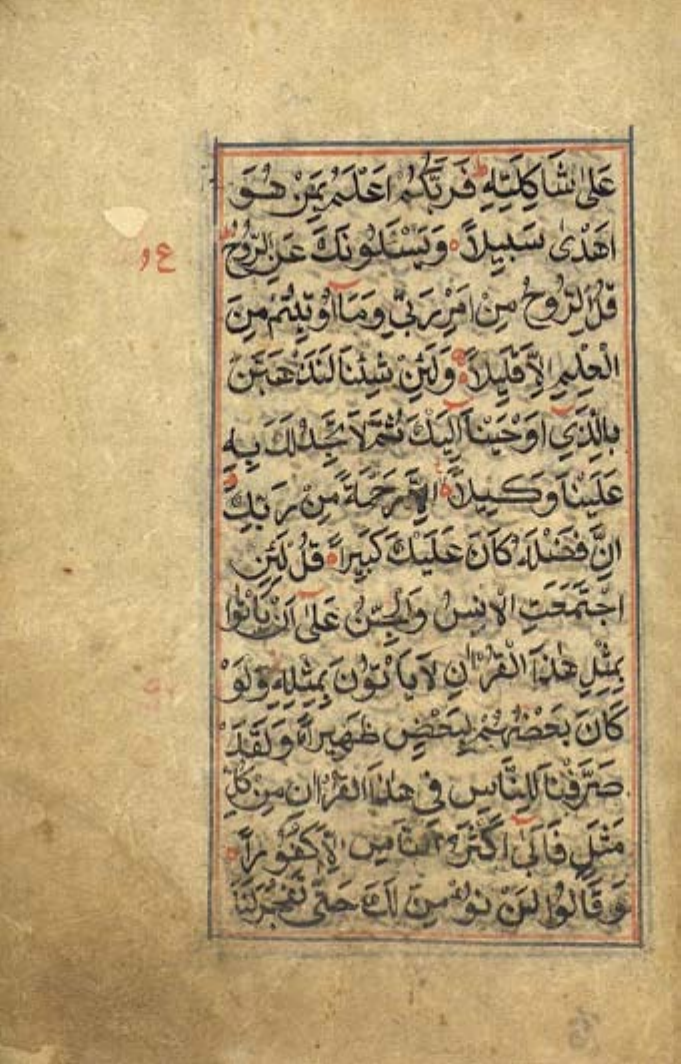 عَلٰى شَاكِلَتِهٖ ط فَرَبُّكُمْ اَعْلَمُ بِمَنْ هُوَ
اَهْدٰى سَبِيلًا وَيَسْئَلُونَكَ عَنِ الرُّوحِ ط
قُلِ الرُّوحُ مِنْ اَمْرِ رَبِّي وَمَا اُوتِيتُمْ مِنَ
الْعِلْمِ اِلَّا قَلِيلًا وَلَئِنْ شِئْنَا لَنَذْهَبَنَّ
بِالَّذِي اَوْحَيْنَا اِلَيْكَ ثُمَّ لَا تَجِدُ لَكَ بِهٖ
عَلَيْنَا وَكِيلًا اِلَّا رَحْمَةً مِنْ رَبِّكَ
اِنَّ فَضْلَهُ كَانَ عَلَيْكَ كَبِيرًا قُلْ لَئِنِ
اجْتَمَعَتِ الْاِنْسُ وَالْجِنُّ عَلٰى اَنْ يَأْتُوا
بِمِثْلِ هٰذَا الْقُرْاٰنِ لَا يَأْتُونَ بِمِثْلِهٖ وَلَوْ
كَانَ بَعْضُهُمْ لِبَعْضٍ ظَهِيرًا وَلَقَدْ
صَرَّفْنَا لِلنَّاسِ فِي هٰذَا الْقُرْاٰنِ مِنْ كُلِّ
مَثَلٍ فَاَبٰى اَكْثَرُ النَّاسِ اِلَّا كُفُورًا
وَقَالُوا لَنْ نُؤْمِنَ لَكَ حَتّٰى تَفْجُرَ لَنَا